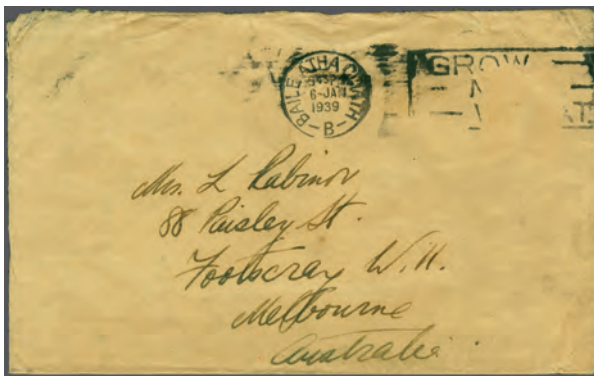 BAILE ATHA CLIATH
6-JAN
1939
B
GROW
Mrs. L Rabinov
88 Paisley St.
Footscray W.11.
Melbourne
Australia.